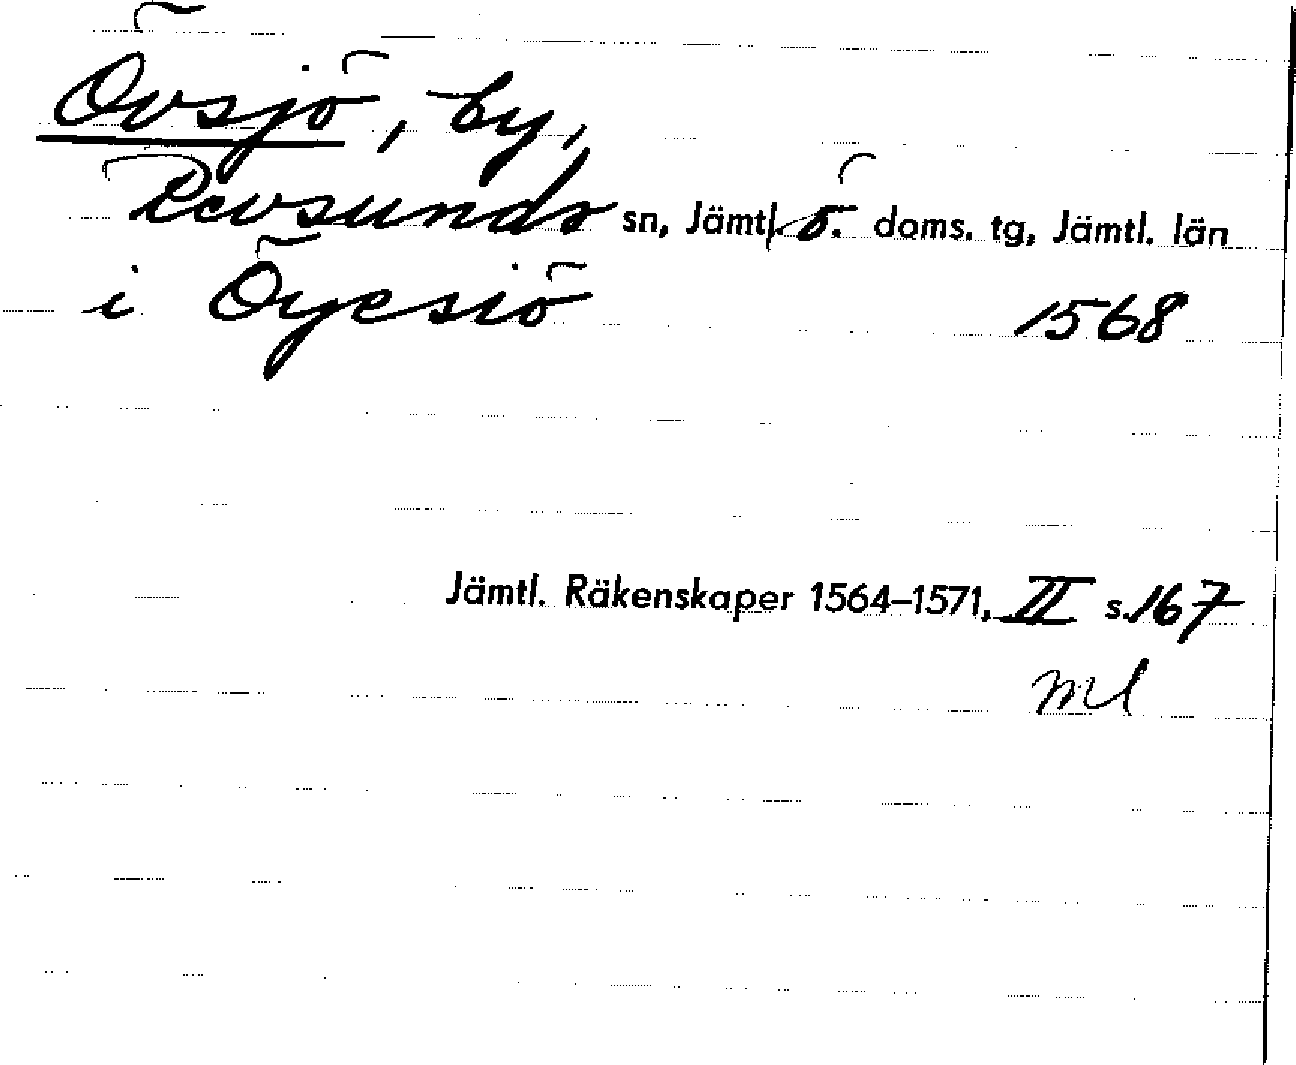 Övsjö, by,
Revsunds sn, Jämtl. ö. doms. tg, Jämtl. län
i Öyesiö 1568
Jämtl. Räkenskaper 1564–1571, II s. 167
ml